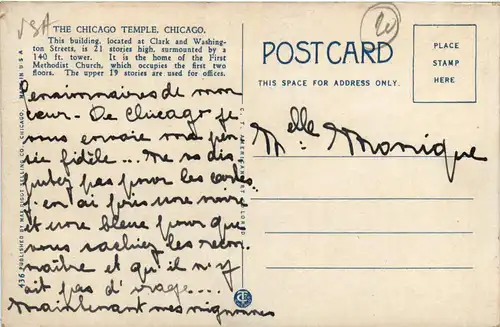 USA
20
THE CHICAGO TEMPLE, CHICAGO.
This building, located at Clark and Washing-
ton Streets, is 21 stories high, surmounted by a
140 ft. tower. It is the home of the First
Methodist Church, which occupies the first two
floors. The upper 19 stories are used for offices.
Pensionnaires de mon
cœur - De Chicago je
vous envoie ma pen
sée fidèle ... Ne vous dis
putez pas pour les cartes
J'en ai pris une noire
et une bleue pour que
vous sachiez les recon
naître et qu'il n'y
ait pas d'orage ....
Maintenant mes mignonnes
POSTCARD
THIS SPACE FOR ADDRESS ONLY.
PLACE
STAMP
HERE
Melle Monique
436 PUBLISHED BY MAX RIGOT SELLING CO., CHICAGO, MADE IN U S A
C. T. AMERICAN ART COLORED